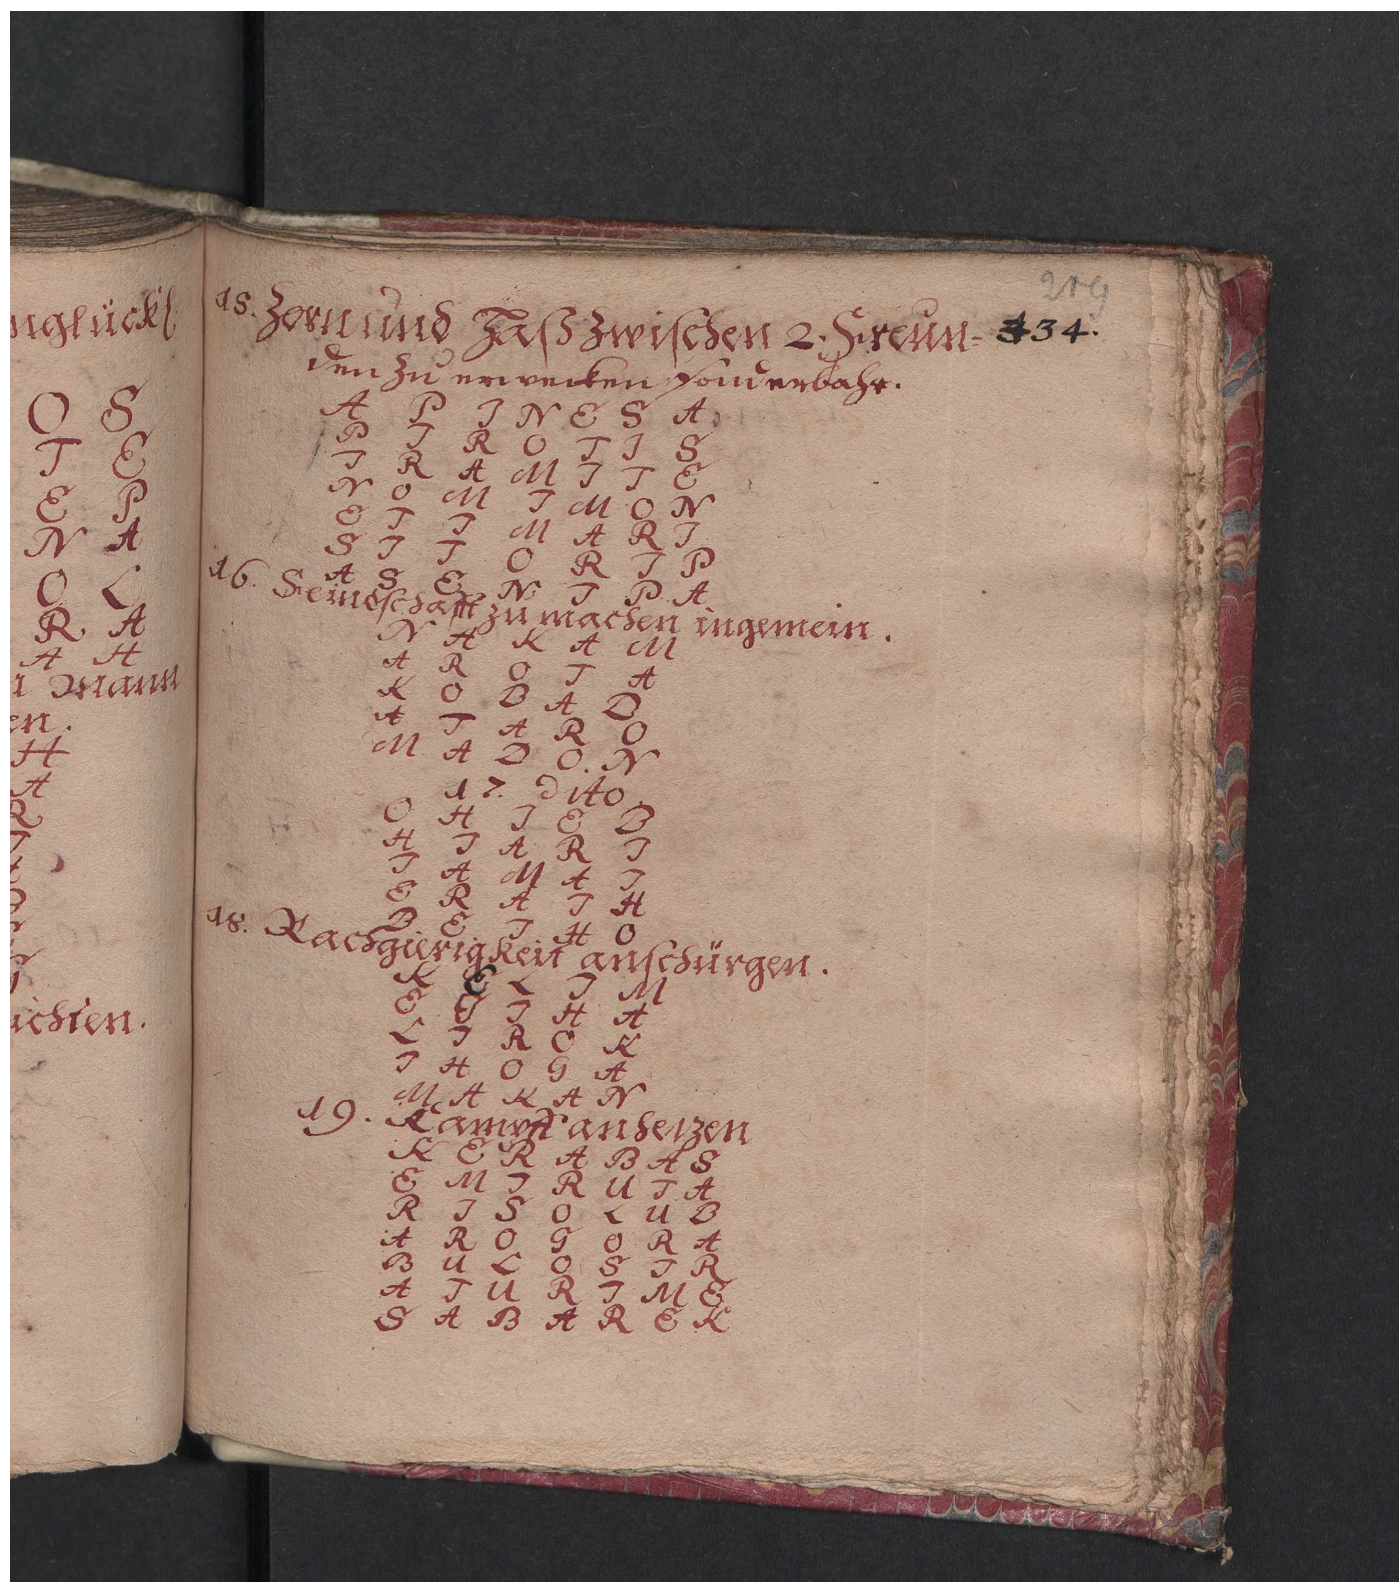 nglückl
O S
T E
E P
N A
O L
R A
A H
Mann
en.
H
A
R
ichten.
219
334.
15. Zorn und Haß zwischen 2. Freun-
den zu erwecken sonderbahr.
A P I N E S A
P I R O T I S
I R A M I T E
N O M I M O N
E T I M A R I
S I T O R I P
A S E N I P A
16. Feindschafft zu machen ingemein.
N A K A M
A R O T A
K O B A D
A T A R O
M A D O N
17. Dito
O H I E B
H I A R I
I A M A I
E R A I H
B E I H O
18. Rachgierigkeit anschürgen.
K E L I M
E I H A
L I R O K
I H O G A
M A K A N
19. Kampff anhetzen
K E R A B A S
E M I R U T A
R I S O L U B
A R O G O R A
B U L O S I R
A T U R I M E
S A B A R E K